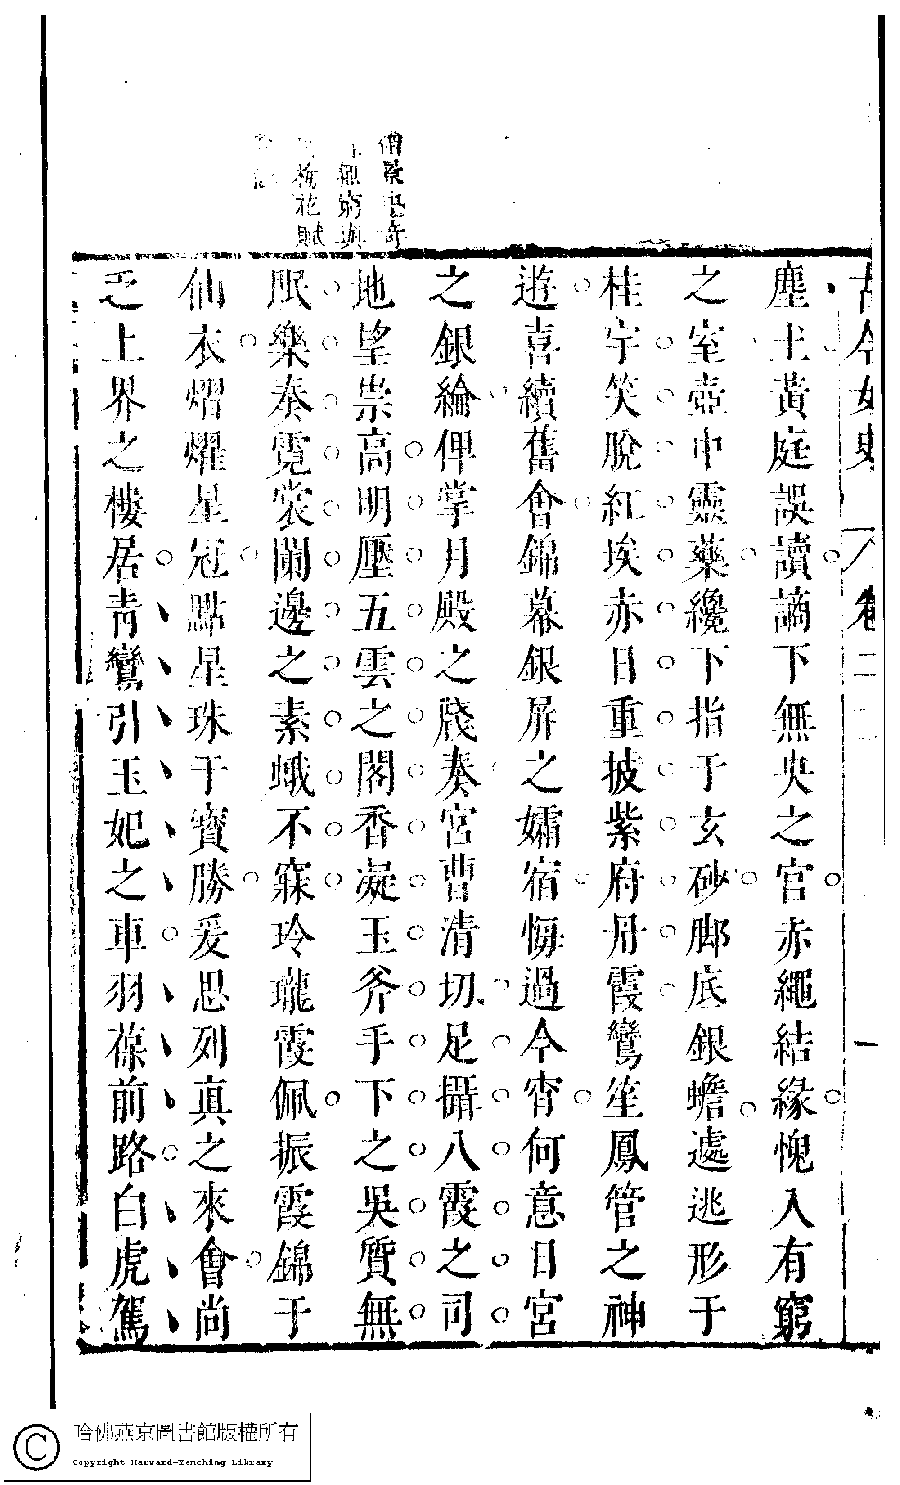 古今女史 卷二 一
塵土黃庭誤讀謫下無央之宮赤繩結緣愧入有窮
之室壺中靈藥纔下指于玄砂脚底銀蟾遽逃形于
桂宇笑脫紅埃赤日重披紫府丹霞鸞笙鳳管之神
遊喜續舊會錦幕銀屏之孀宿悔過今宵何意日宮
之銀綸俾掌月殿之牋奏宮曹清切足躡八霞之司
地望崇高明壓五雲之閣香凝玉斧手下之吳質無
眠樂奏霓裳闌邊之素蛾不寐玲瓏霞佩振霞錦于
仙衣熠燿星冠點星珠于寶勝爰思列真之來會尚
乏上界之樓居青鸞引玉妃之車羽葆前路白虎駕
梅花賦
哈佛燕京圖書館版權所有
Copyright Harvard-Yenching Library